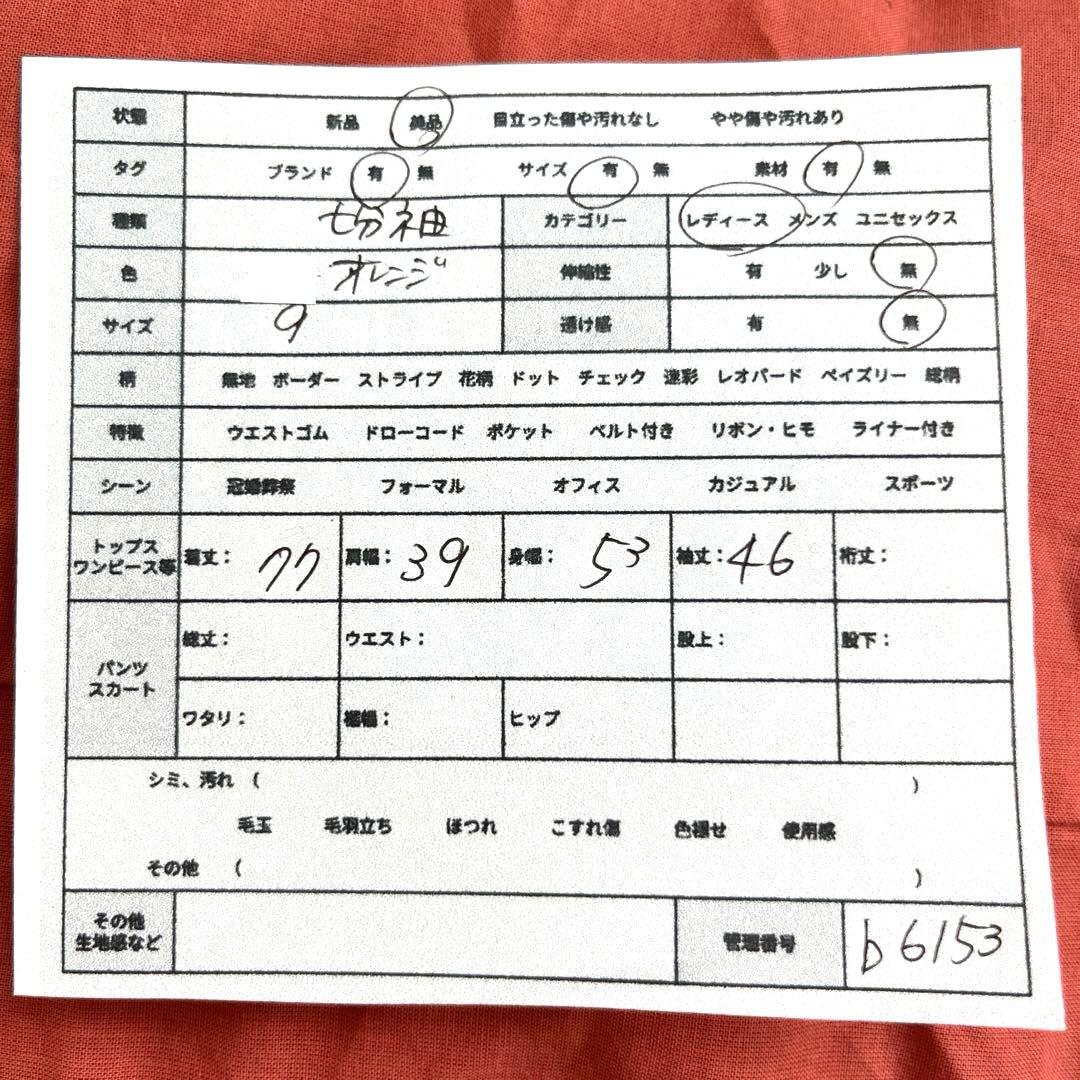 状態 新品 美品 目立った傷や汚れなし やや傷や汚れあり
タグ ブランド 有 無 サイズ 有 無 素材 有 無
種類 七分袖 カテゴリー レディース メンズ ユニセックス
色 オレンジ 伸縮性 有 少し 無
サイズ 9 透け感 有 無
柄 無地 ボーダー ストライプ 花柄 ドット チェック 迷彩 レオパード ペイズリー 総柄
特徴 ウエストゴム ドローコード ポケット ベルト付き リボン・ヒモ ライナー付き
シーン 冠婚葬祭 フォーマル オフィス カジュアル スポーツ
トップス
ワンピース等 着丈: 77 肩幅: 39 身幅: 53 袖丈: 46 裄丈:
パンツ
スカート
総丈: ウエスト: 股上: 股下:
ワタリ: 裾幅: ヒップ
シミ、汚れ ( )
毛玉 毛羽立ち ほつれ こすれ傷 色褪せ 使用感
その他 ( )
その他
生地感など 管理番号 b6153